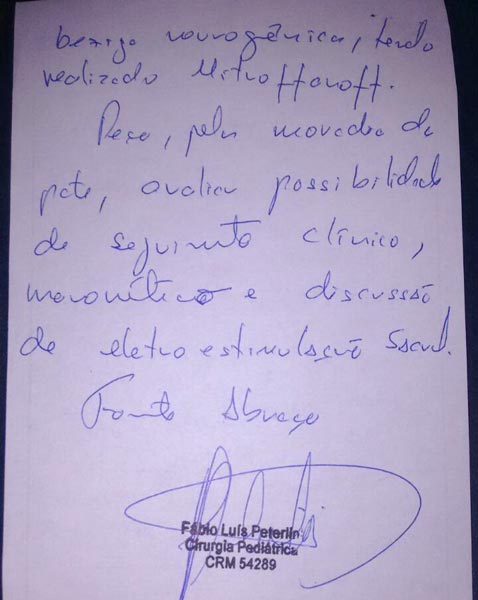 bexiga neurogênica, tendo
realizado Mitroffanoff.
Peço, pelos da
pcte, avaliar possibilidade
de seguimento clínico,
e discussão
de eletroestimulação Sacral.
Forte Abraço
Fábio Luís Peterlini
Cirurgia Pediátrica
CRM 54289